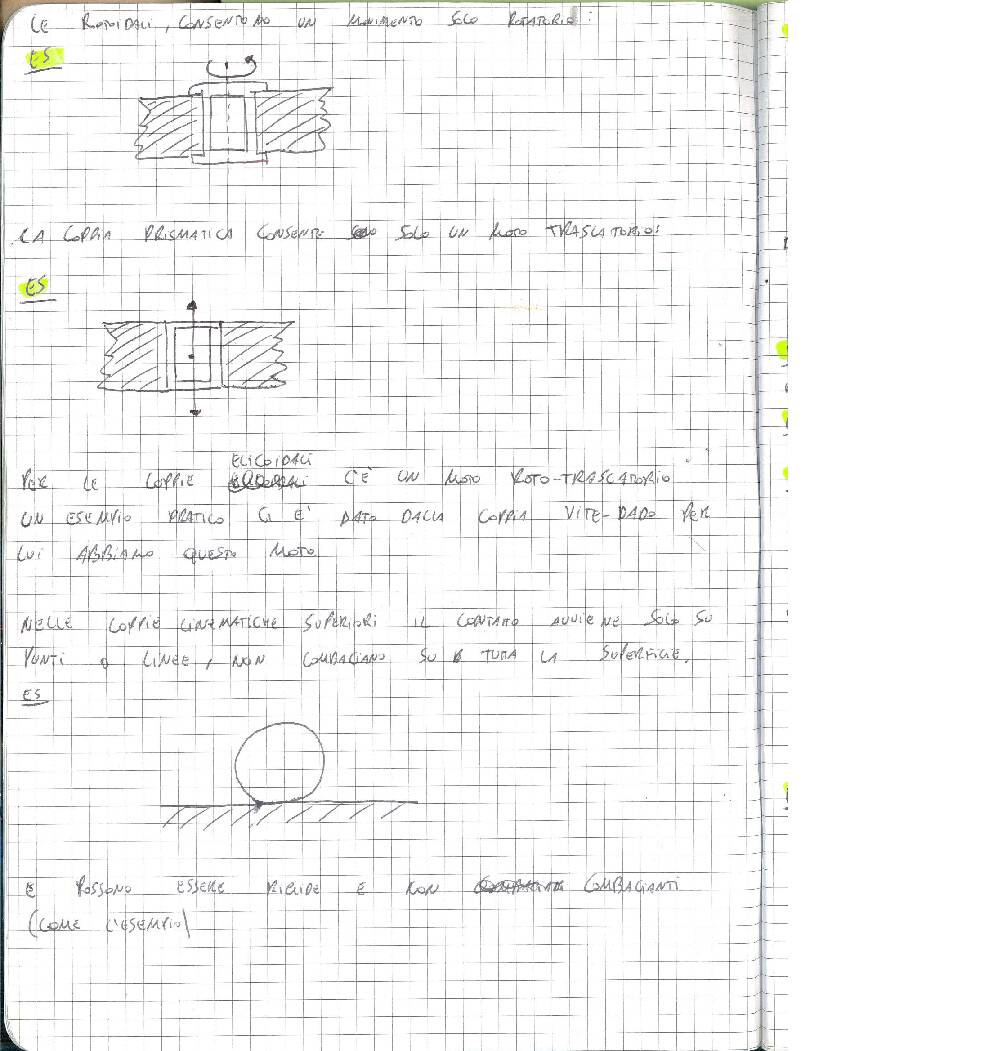 LE ROTOIDALI, CONSENTONO UN MOVIMENTO SOLO ROTATORIO:
ES
LA COPPIA PRISMATICA CONSENTE SOLO UN MOTO TRASLATORIO:
ES
ELICOIDALI
PER LE COPPIE C'È UN MOTO ROTO-TRASLATORIO
UN ESEMPIO PRATICO CI E' DATO DALLA COPPIA VITE-DADO PER
LUI ABBIAMO QUESTO MOTO
NELLE COPPIE CINEMATICHE SUPERIORI IL CONTATTO AVVIENE SOLO SU
PUNTI O LINEE, NON COMBACIANO SU TUTTA LA SUPERFICIE.
ES
E POSSONO ESSERE RIGIDE E NON COMBACIANTI
(COME L'ESEMPIO)